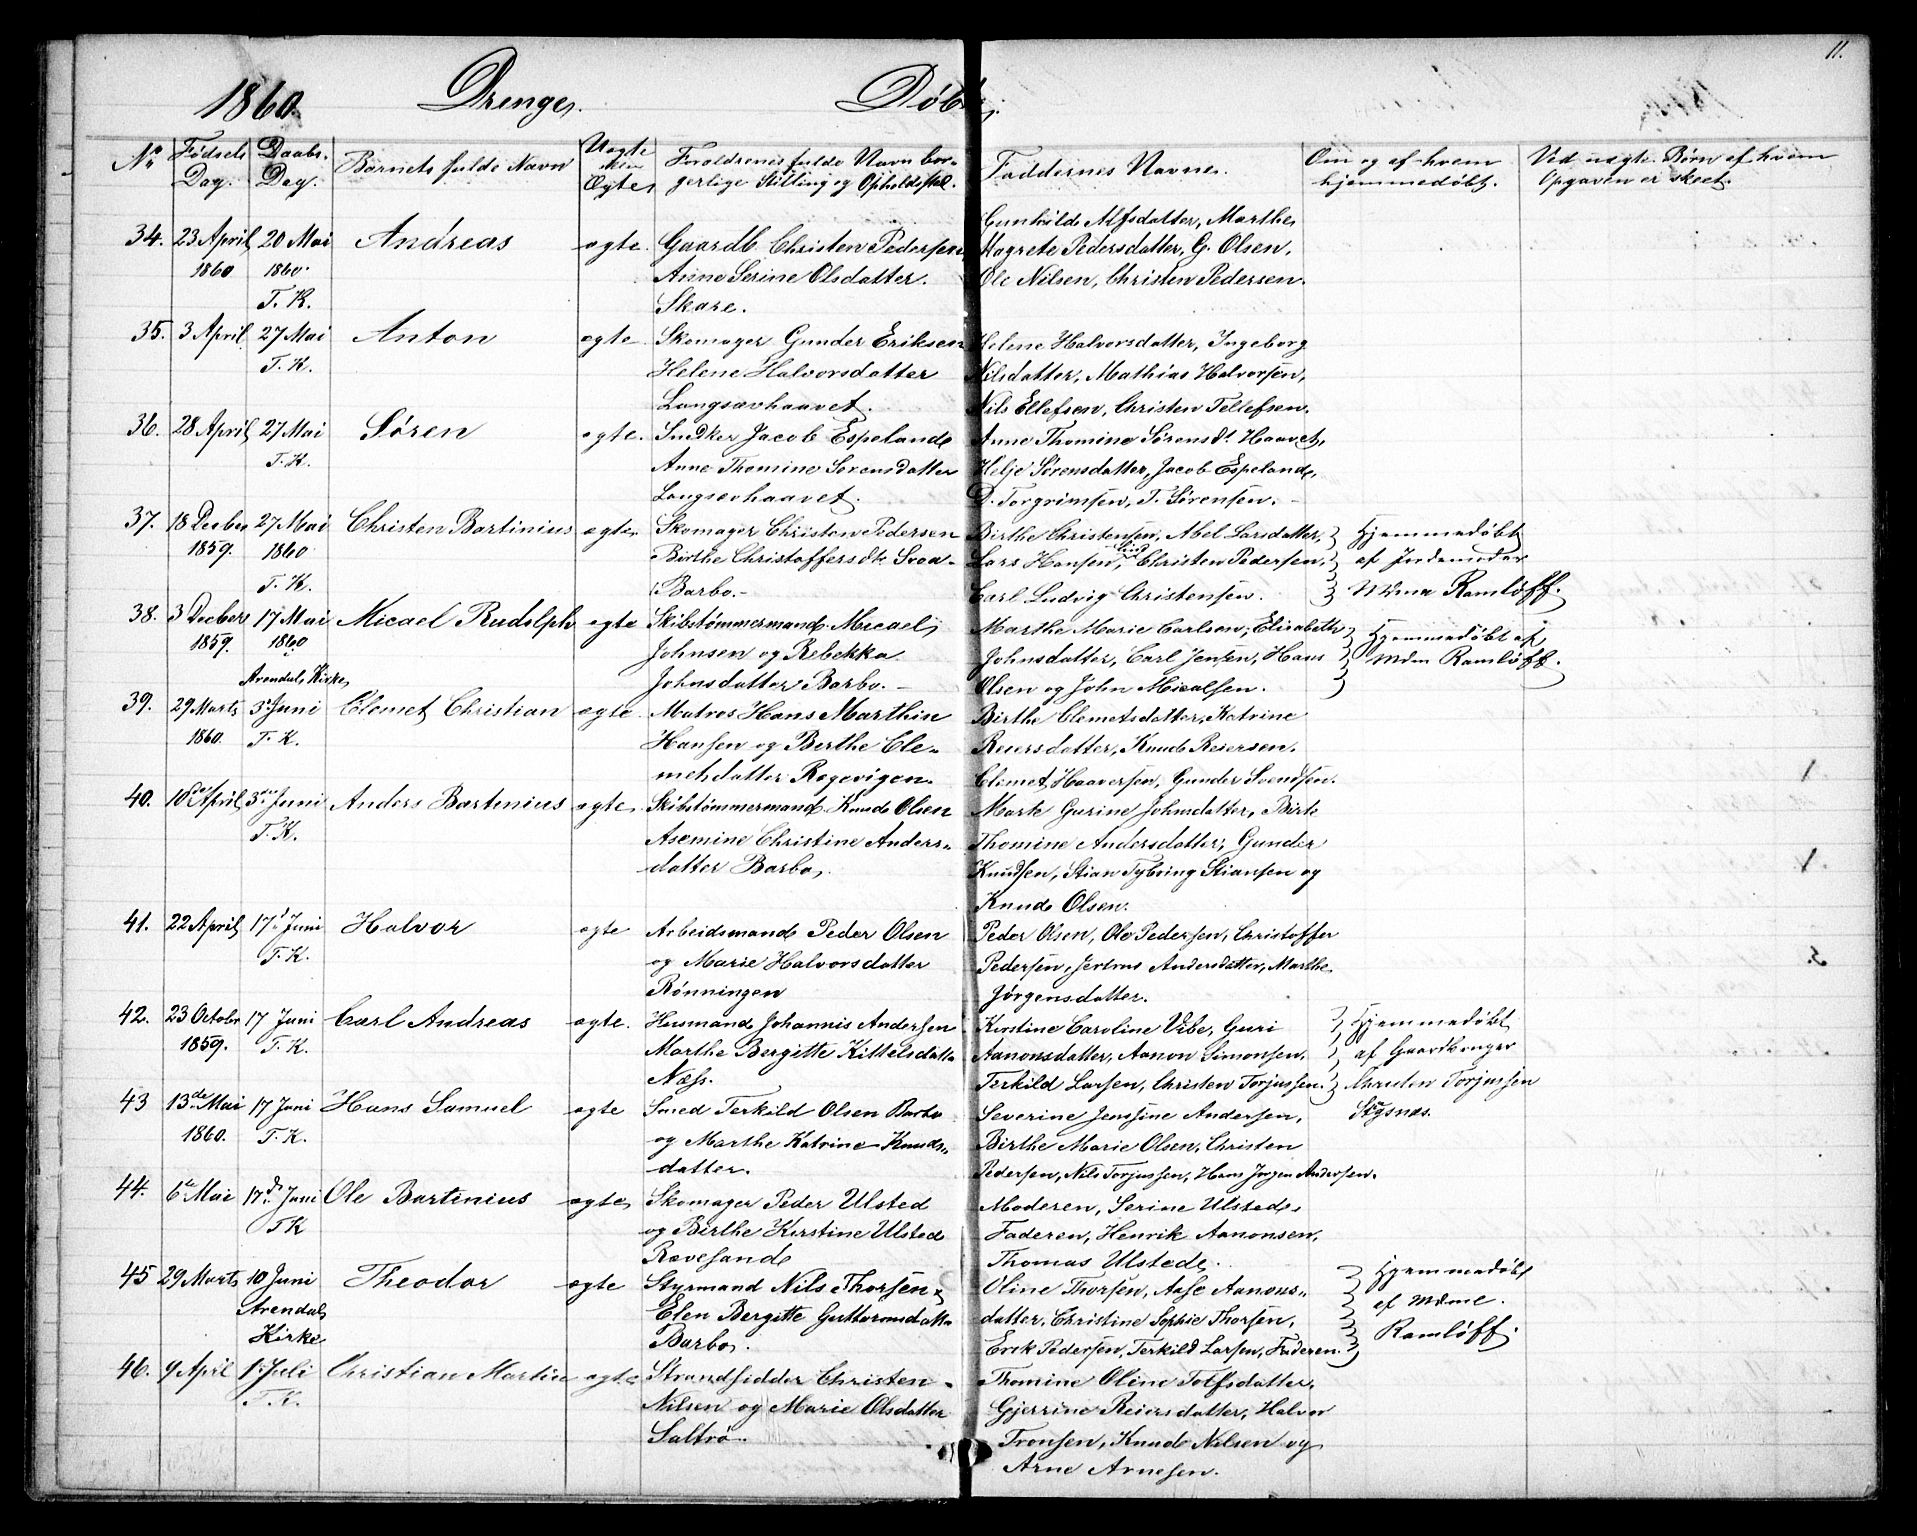 11.
1860. Drenge. Døbte.
No Fødsels Dag. Daabs. Dag. Barnets fulde Navn Uægte eller Ægte. Forældrenes fulde Navn borgerlige Stilling og Opholdssted. Faddernes Navne. Om og af hvem hjemmedøbt. Ved uægte Børn af hvem Opgaven er skeet.
34. 23 April 1860 20 Mai 1860. T. K. Andreas ægte. Gaardb Christen Pedersen
Anne Serine Olsdatter.
Skare.
Gunhilde Alfsdatter, Marthe
Magrete Pedersdatter, G. Olsen,
Ole Nilsen, Christen Pedersen.
35. 3 April 27 Mai T. K. Anton ægte. Skomager Gunder Eriksen
Helene Halvorsdatter
Langsævhaavet.
Helene Halvorsdatter, Ingeborg
Nilsdatter, Mathias Halvorsen,
Nils Ellefsen, Christen Tellefsen.
36. 28 April 27 Mai T. K. Søren ægte. Snedker Jacob Espeland
Anne Thomine Sørensdatter
Langsævhaavet.
Anne Thomine Sørensdt Haavet,
Helje Sørensdatter, Jacob Espeland,
D. Torgrimsen, T. Sørensen.
37. 18 Decber 1859. 27 Mai 1860 T. K. Christen Bartinius ægte Skomager Christen Pedersen
Birthe Christoffersdt
Barbo.
Birthe Christensen, Abel Larsdatter,
Lars Hansen, Christen Pedersen,
Carl Ludvig Christensen.
Hjemmedøbt
af Jordemoder
Mdme Ramløff.
38. 3 Decber 1859. 17 Mai 1860 Arendals Kirke Micael Rudolph ægte Skibstømmermand Micael
Johnsen og Rebekka
Johnsdatter Barbo.
Marthe Marie Carlsen, Elisabeth
Johnsdatter, Carl Jensen, Hans
Olsen og John Micalsen.
Hjemmedøbt af
Mdm Ramløff.
39. 29 Marts 1860. 3 Juni T. K. Clemet Christian ægte Matros Hans Marthin
Hansen og Berthe Cle-
metsdatter Røgevigen.
Birthe Clemetsdatter, Katrine
Reiersdatter, Knud Reiersen.
Clemet Haaversen, Gunder Svendsen.
40. 10 April 3 Juni T. K. Anders Bartinius ægte Skibstømmermand Knud Olsen
Asemine Christine Anders-
datter Barbo.
Marte Gurine Johnsdatter, Birte
Thomine Andersdatter, Gunder
Knudsen, Stian Tybring Stiansen og
Knud Olsen.
41. 22 April 17 Juni T. K. Halvor ægte Arbeidsmand Peder Olsen
og Marie Halvorsdatter
Rønningen
Peder Olsen, Ole Pedersen, Christoffer
Pedersen, Jertrus Andersdatter, Marthe
Jørgensdatter.
42. 23 Octobr 1859. 17 Juni T. K. Carl Andreas ægte. Husmand Johannis Andersen
Marthe Bergitte Kittelsdatter
Næss.
Kirstine Caroline Vibe, Guri
Aanonsdatter, Aanon Simonsen,
Terkild Larsen, Christen Torjussen.
Hjemmedøbt
af Gaardbruger
Christen Torjussen
Stysnæs.
43 13de Mai 1860. 17 Juni T. K. Hans Samuel ægte Smed Terkild Olsen Barbo
og Marthe Katrine Knuds-
datter.
Severine Jenssine Andersen,
Birthe Marie Olsen, Christen
Pedersen, Nils Torjussen, Hans Jørgen Andersen.
44. 6te Mai 17de Juni T K Ole Bartinius ægte Skomager Peder Ulsted
og Birthe Kirstine Ulsted
Rævesand
Moderen, Serine Ulsted,
Faderen, Henrik Aanonsen,
Thomas Ulsted.
45 29 Marts 10 Juni Arendals Kirke Theodor ægte Styrmand Nils Thorsen
Elen Bergitte Guttormsdatter
Barbo.
Oline Thorsen, Aase Aanons-
datter, Christine Sophie Thorsen,
Erik Pedersen, Terkild Larsen, Faderen.
Hjemmedøbt
af Mdme.
Ramløff.
46. 9 April 1 Juli T. K. Christian Martin ægte Strandsidder Christen
Nilsen og Marie Olsdatter
Saltrø.
Thomine Oline Tolfsdatter,
Gjerrine Reiersdatter, Halvor
Tronsen, Knud Nilsen og
Arne Arnesen.